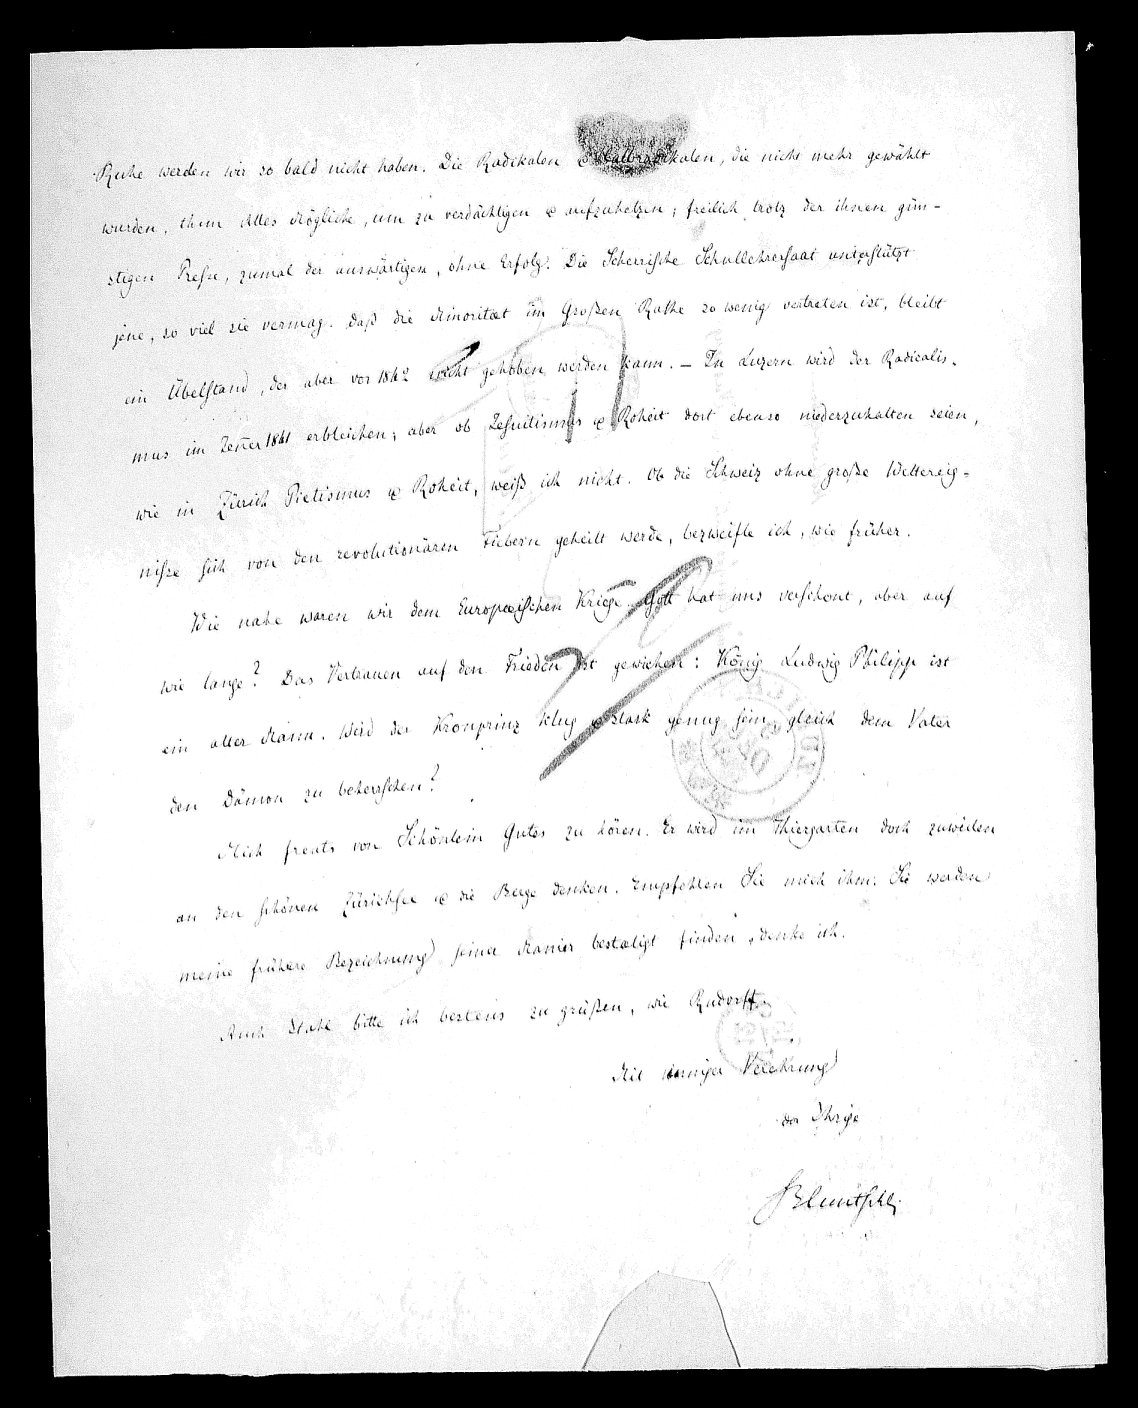 Ruhe werden wir so bald nicht haben. Die Radikalen & Halbradikalen, die nicht mehr gewählt
wurden, thun Alles Mögliche, um zu verdächtigen & aufzuhetzen; freilich trotz der ihnen gün-
stigen Presse, zumal der auswärtigen, ohne Erfolg. Die Scherrische Schullehrersaat unterstützt
jene, so viel sie vermag. Daß die Minoritæt im Großen Rathe so wenig vertreten ist, bleibt
ein Übelstand, der aber vor 1842 nicht gehoben werden kann. – In Luzern wird der Radicalis-
mus im Jenner 1841 erbleichen; aber ob Jesuitismus & Roheit dort ebenso niederzuhalten seien,
wie in Zürich Pietismus & Roheit, weiß ich nicht. Ob die Schweiz ohne große Weltereig-
nisse sich von den revolutionären Fiebern geheilt werde, bezweifle ich, wie früher.
Wie nahe waren wir dem Europæischen Kriege. Gott hat uns verschont, aber auf
wie lange? Das Vertrauen auf den Frieden ist gewichen: König Ludwig Philipp ist
ein alter Mann. Wird der Kronprinz klug & stark genug sein, gleich dem Vater
den Dämon zu beherrschen?
Mich freuts von Schönlein Gutes zu hören. Er wird im Thiergarten doch zuweilen
an den schönen Zürichsee & die Berge denken. Empfehlen Sie mich ihm. Sie werden
meine frühere Bezeichnung seiner Manier bestætigt finden, denke ich.
Auch Stahl bitte ich bestens zu grüßen, wie Rudorff.
Mit inniger Verehrung
der Ihrige
Bluntschli.